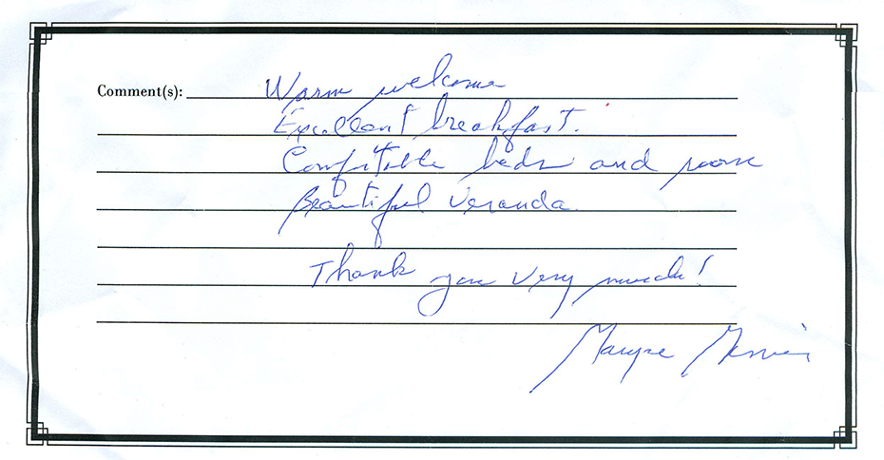 Comment(s): Warm welcome
Excellent breakfast.
Comfitible beds and room
Beautiful Veranda.
Thank you very much!
Maryse